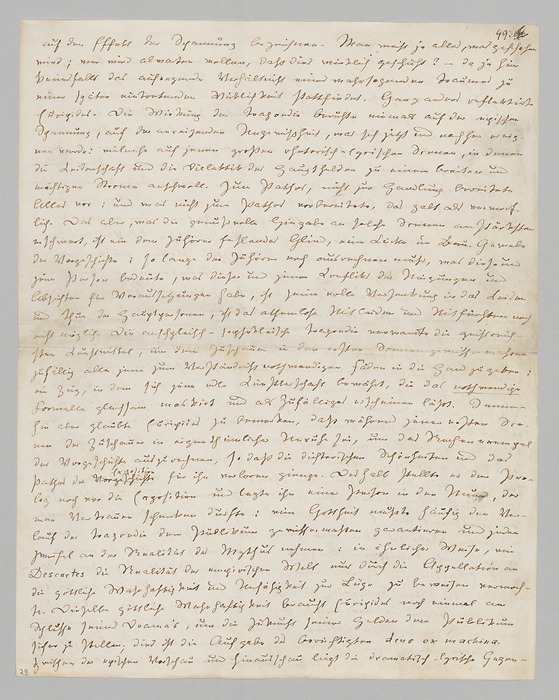 49.
auf den Effekt der Spannung bezeichnen. Man weiß ja alles, was geschehen
wird; wer wird abwarten wollen, daß dies wirklich geschieht? – da ja hier
keinesfalls das aufregende Verhältniß eines wahrsagenden Traumes zu
einer später eintretenden Wirklichkeit stattfindet. Ganz anders reflektirte
Euripides. Die Wirkung der Tragödie beruhte niemals auf der epischen
Spannung, auf der anreizenden Ungewißheit, was sich jetzt und nachher ereig-
nen werde: vielmehr auf jenen großen rhetorisch-lyrischen Scenen, in denen
die Leidenschaft und die Dialektik des Haupthelden zu einem breiten und
mächtigen Strome anschwoll. Zum Pathos, nicht zur Handlung bereitete
Alles vor: und was nicht zum Pathos vorbereitete, das galt als verwerf-
lich. Das aber, was die genußvolle Hingabe an solche Scenen am stärksten
erschwert, ist ein dem Zuhörer fehlendes Glied, eine Lücke im Gewebe
der Vorgeschichte; so lange der Zuhörer noch ausrechnen muß, was diese und
jene Person bedeute, was dieser und jener Conflikt der Neigungen und
Absichten für Voraussetzungen habe, ist seine volle Versenkung in das Leiden
und Thun der Hauptpersonen, ist das athemlose Mitleiden und Mitfürchten noch
nicht möglich. Die aeschyleisch-sophokleische Tragödie verwandte die geistreich-
sten Kunstmittel, um dem Zuschauer in den ersten Scenen gewissermaßen
zufällig alle jene zum Verständniß nothwendigen Fäden in die Hand zu geben:
ein Zug, in dem sich jene edle Künstlerschaft bewährt, die das nothwendige
Formelle gleichsam maskirt und als Zufälliges erscheinen läßt. Immer-
hin aber glaubte Euripides zu bemerken, daß während jener ersten Sce-
nen der Zuschauer in eigenthümlicher Unruhe sei, um das Rechenexempel
der Vorgeschichte auszurechnen, so daß die dichterischen Schönheiten und das
Pathos der Exposition für ihn verloren gienge. Deshalb stellte er den Pro-
log noch vor die Exposition und legte ihn einer Person in den Mund, der
man Vertrauen schenken durfte: eine Gottheit mußte häufig den Ver-
lauf der Tragödie dem Publikum gewissermaßen garantieren und jeden
Zweifel an der Realität des Mythus nehmen: in ähnlicher Weise, wie
Descartes die Realität der empirischen Welt nur durch die Appellation an
die göttliche Wahrhaftigkeit und Unfähigkeit zur Lüge zu beweisen vermoch-
te. Dieselbe göttliche Wahrhaftigkeit braucht Euripides noch einmal am
Schlusse seines Drama's, um die Zukunft seiner Helden dem Publikum
sicher zu stellen; dies ist die Aufgabe des berüchtigten deus ex machina.
Zwischen der epischen Vorschau und Hinausschau liegt die dramatisch-lyrische Gegen-